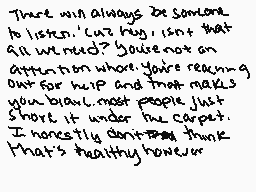 There will always be someone
to listen. 'Cuz hey, isn't that
all we need? You're not an
attention whore. You're reaching
out for help and that makes
you brave. most people just
shove it under the carpet.
I honestly don't think
that's healthy however